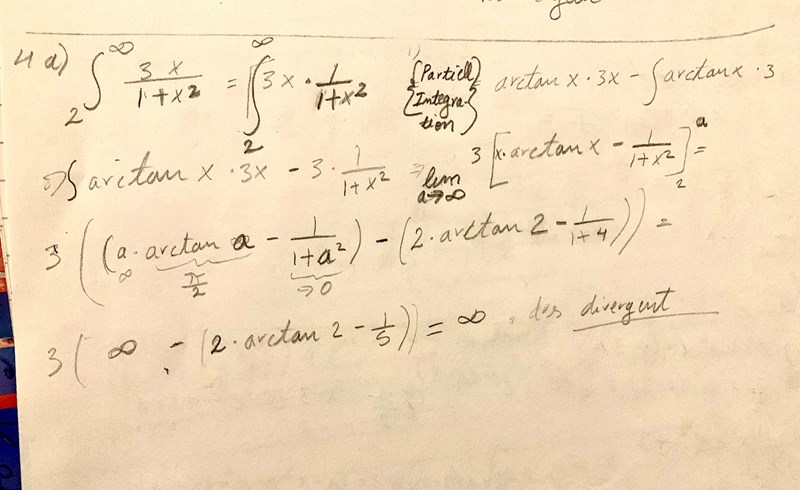 4 a) ∫₂^∞ 3x/(1+x²) = ∫₂^∞ 3x · 1/(1+x²) {Partiell Integration} arctan x · 3x − ∫ arctan x · 3
arctan x · 3x − 3 · 1/(1+x²) ⇒ lim a→∞ 3 [x · arctan x − 1/(1+x²)]₂^a =
3 ((a · arctan a − 1/(1+a²)) − (2 · arctan 2 − 1/(1+4))) =
∞ π/2 →0
3 ( ∞ − (2 · arctan 2 − 1/5)) = ∞ divergent